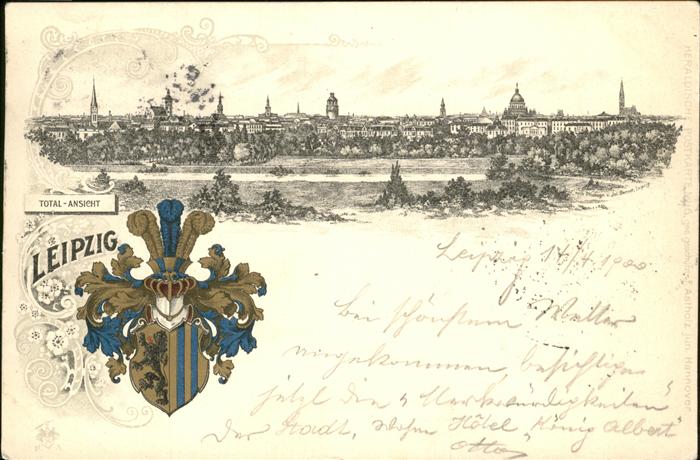 TOTAL-ANSICHT
LEIPZIG
Leipzig 14/4 1900
Bei schönstem Wetter
angekommen, besichtigen
jetzt die "Merkwürdigkeiten"
der Stadt, wohne Hôtel "König Albert"
Otto